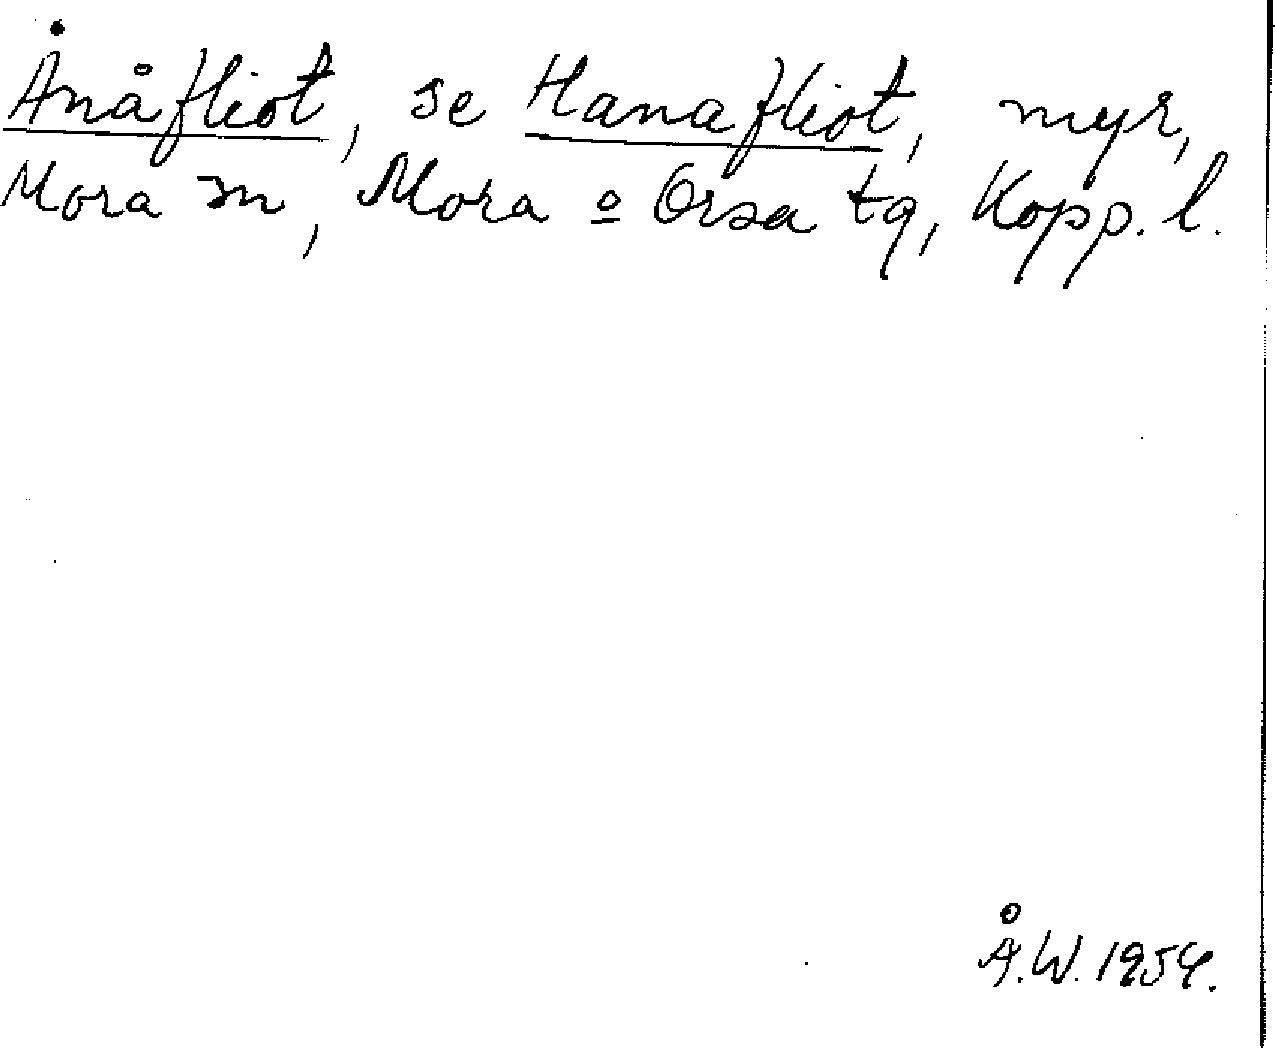 Ånåfliot, se Hanafliot, myr,
Mora sn, Mora o Orsa tg, Kopp. l.
Å.W. 1954.